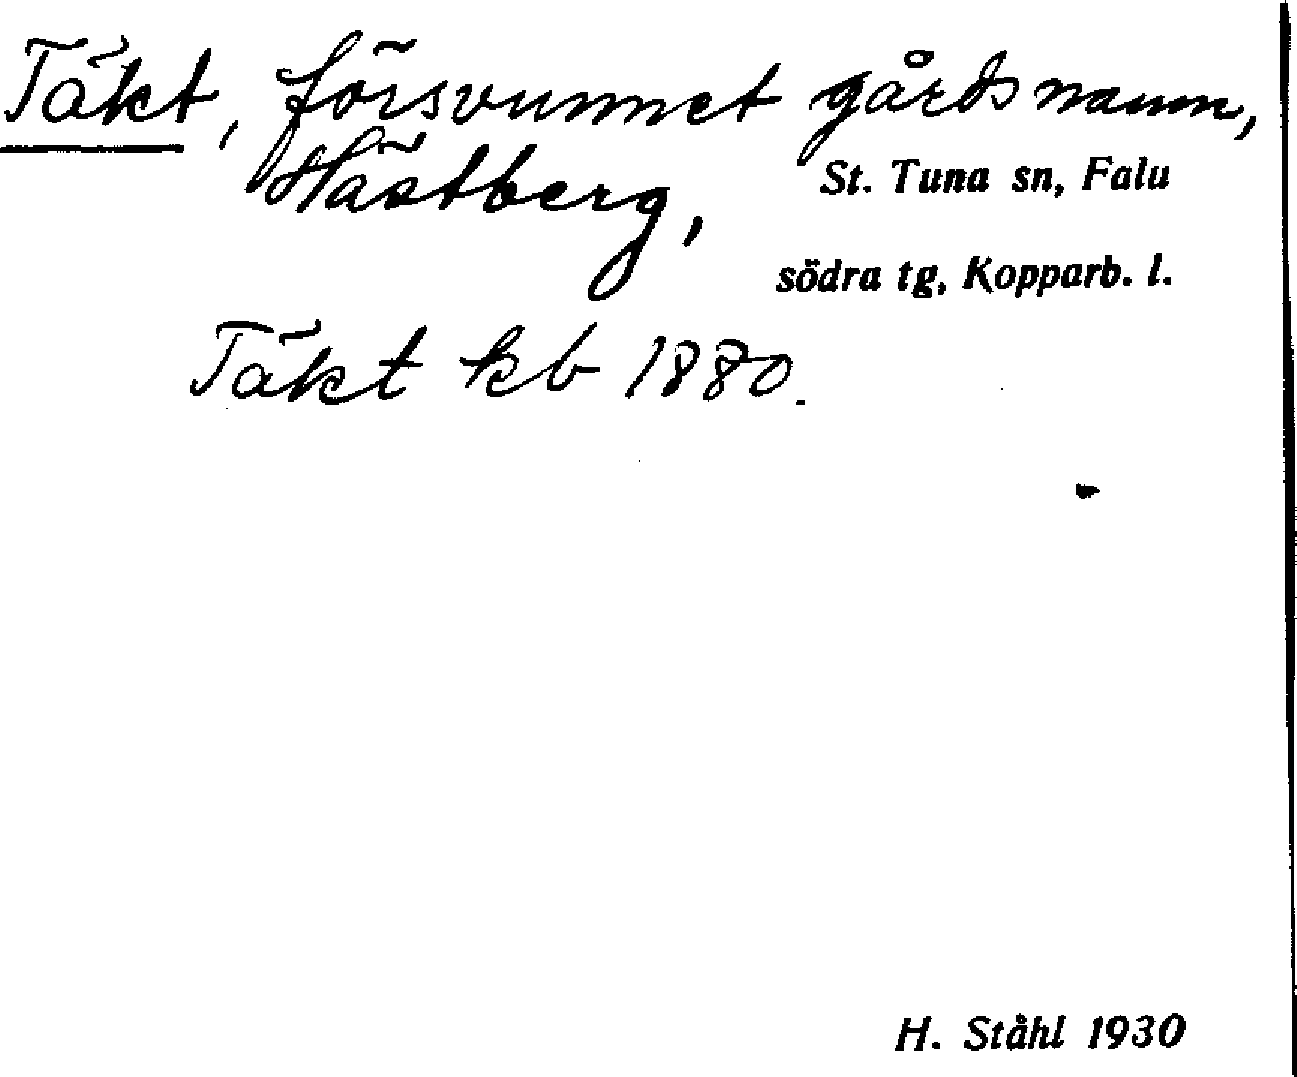 Täkt, försvunnet gårdsnamn,
Hästberg, St. Tuna sn, Falu
södra tg, Kopparb. l.
Täkt kb 1880.
H. Ståhl 1930